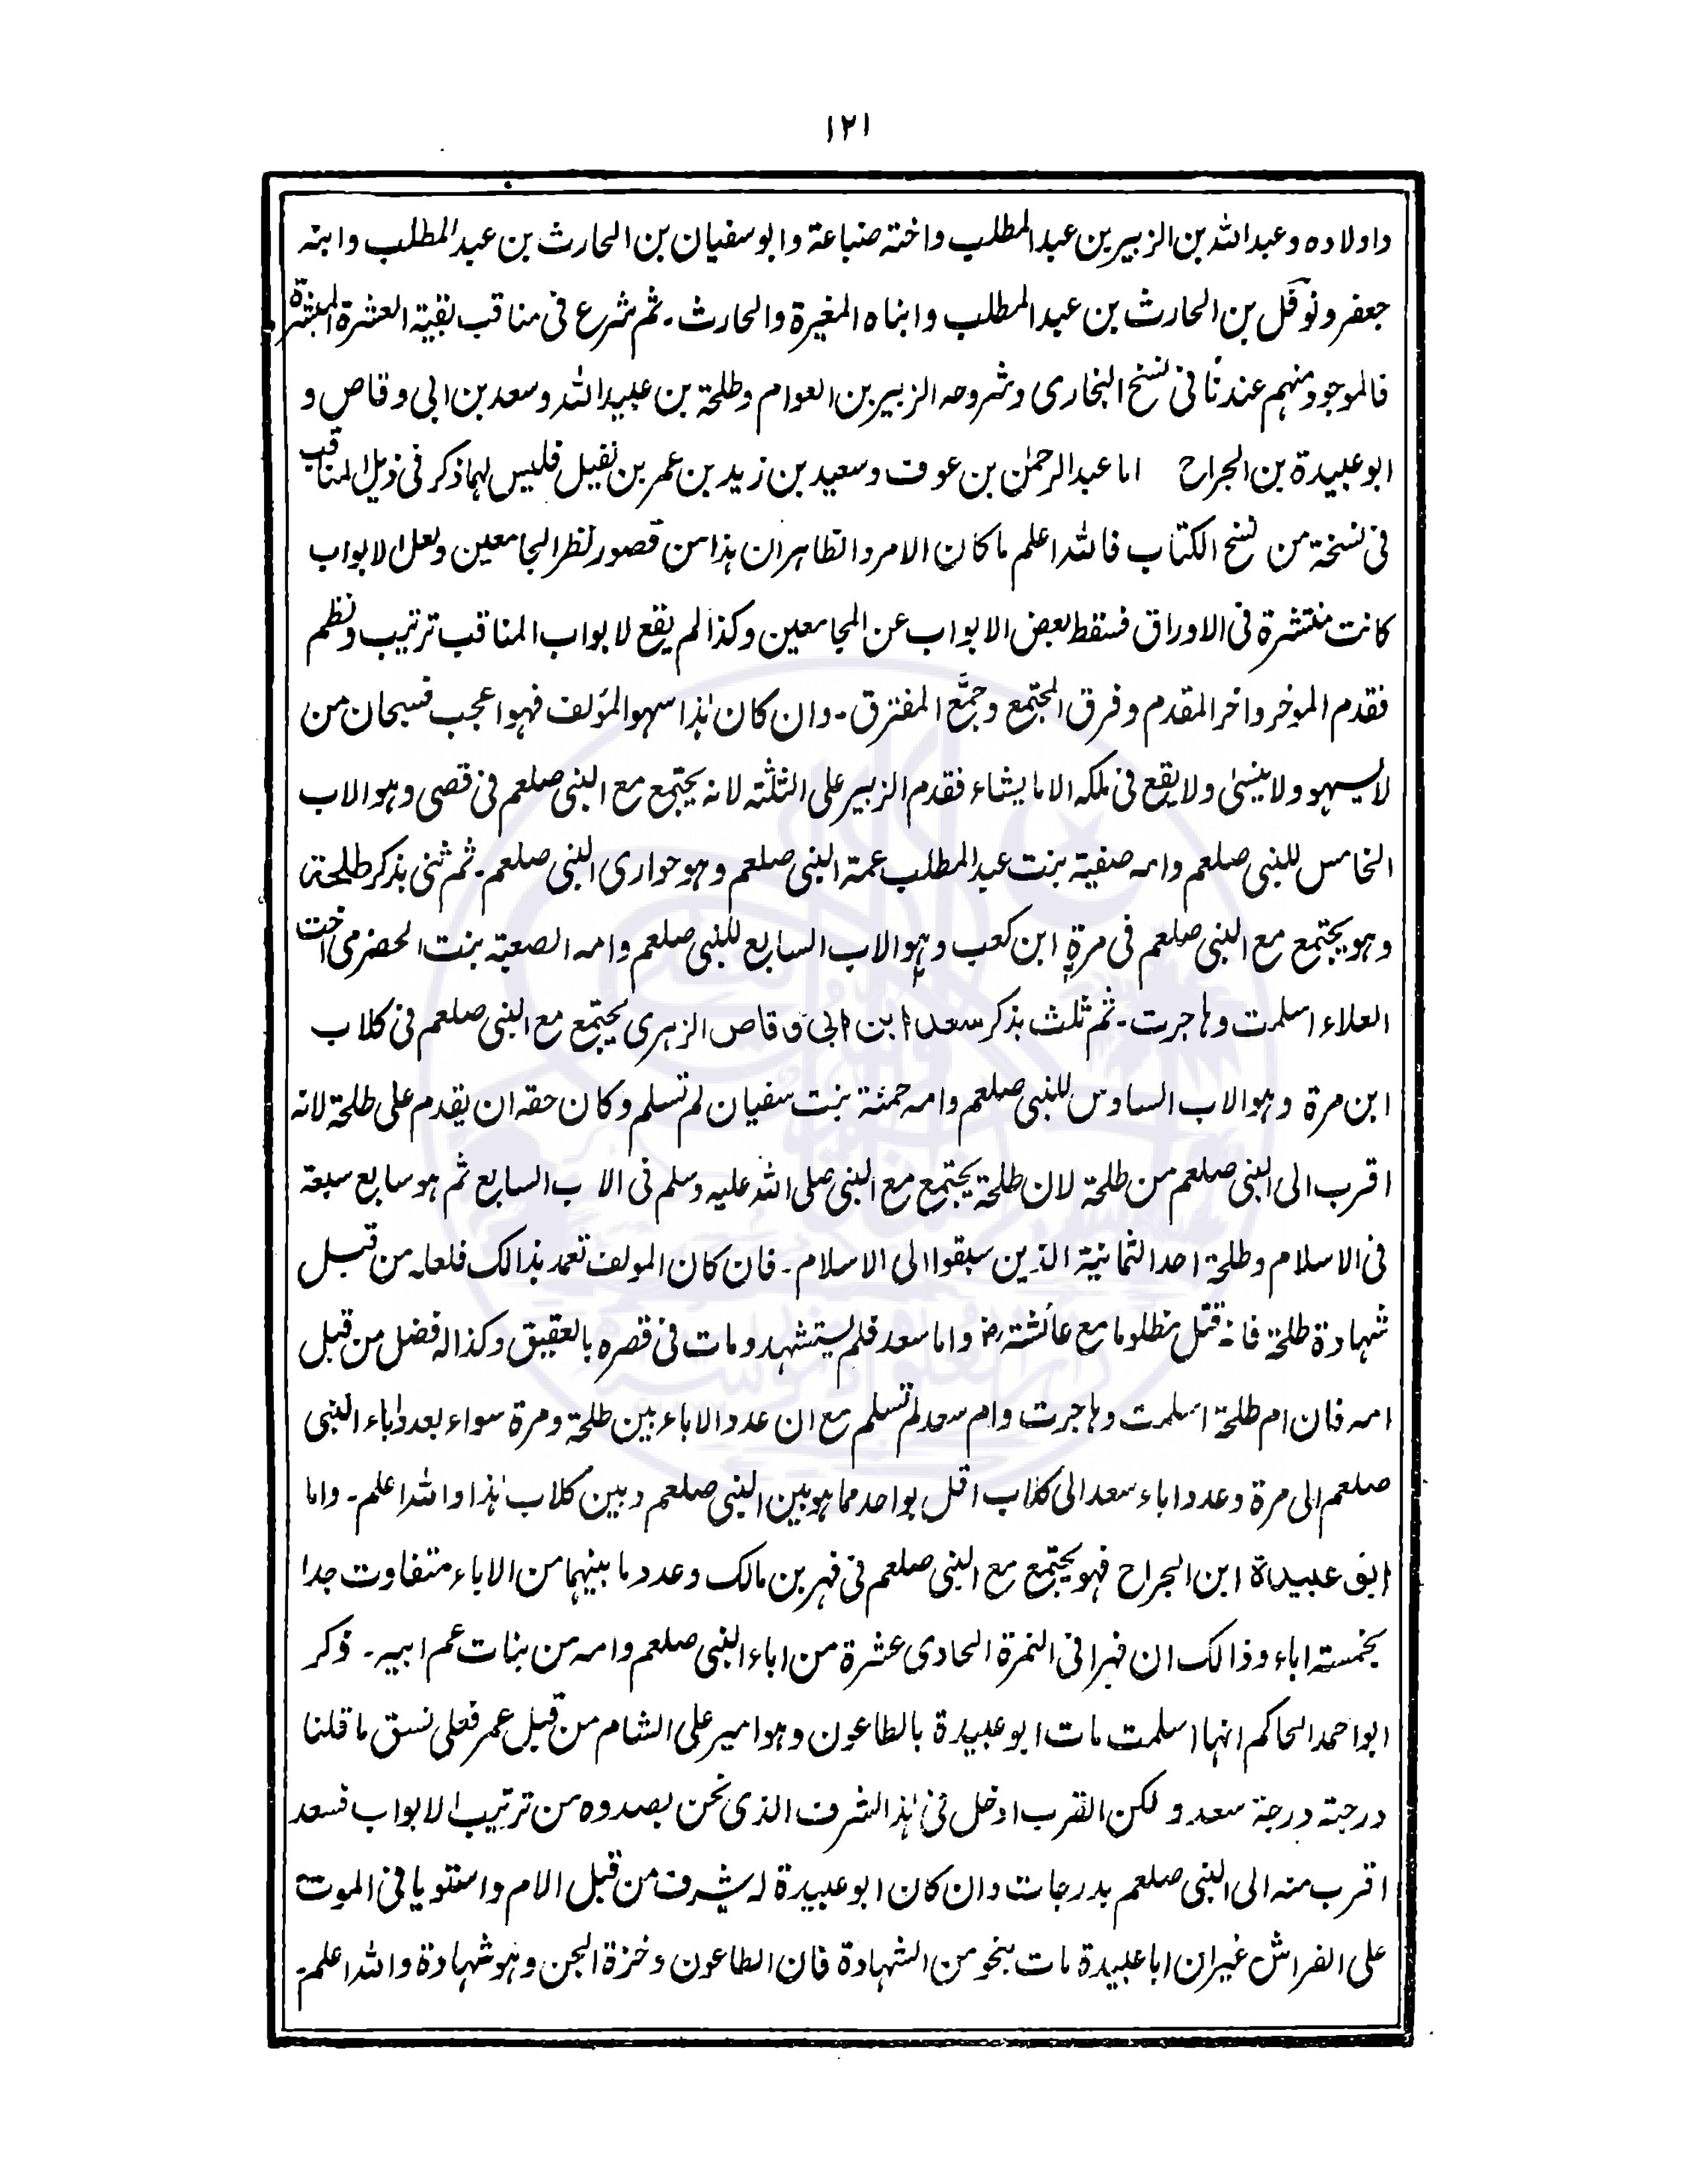 ١٢١
واولاده وعبدالله بن الزبير بن عبدالمطلب واخته ضباعة وابو سفيان بن الحارث بن عبدالمطلب وابنه
جعفر ونوفل بن الحارث بن عبدالمطلب وابناه المغيرة والحارث۔ ثم شرع فى مناقب بقية العشرة المبشرة
فالموجود منهم عندنا فى نسخ البخارى وشروحه الزبير بن العوام وطلحة بن عبيدالله وسعد بن ابى وقاص و
ابو عبيدة بن الجراح اما عبدالرحمٰن بن عوف وسعيد بن زيد بن عمر بن نفيل فليس لهما ذكر فى ذيل المناقب
فى نسخة من نسخ الكتاب فالله اعلم ما كان الامر والظاهر ان هذا من قصور نظر الجامعين ولعل الابواب
كانت منتشرة فى الاوراق فسقط بعض الابواب عن الجامعين وكذا لم يقع لابواب المناقب ترتيب ونظم
فقدم الموخر واخر المقدم وفرق المجتمع وجمَّع المفترق۔ وان كان هٰذا سهو المؤلف فهو اعجب فسبحان من
لا يسهو ولا ينسىٰ ولا يقع فى ملكه الا ما يشاء فقدم الزبير على الثلثة لانه يجتمع مع النبى صلعم فى قصى وهو الاب
الخامس للنبى صلعم وامه صفية بنت عبدالمطلب عمة النبى صلعم وهو حوارى النبى صلعم۔ ثم ثنى بذكر طلحة
وهو يجتمع مع النبى صلعم فى مرة ابن كعب وهو الاب السابع للنبى صلعم وامه الصعبة بنت الحضرمى اخت
العلاء اسلمت وهاجرت۔ ثم ثلث بذكر سعد ابن ابى وقاص الزهرى يجتمع مع النبى صلعم فى كلاب
ابن مرة وهو الاب السادس للنبى صلعم وامه حمنة بنت سفيان لم تسلم وكان حقه ان يقدم على طلحة لانه
اقرب الى النبى صلعم من طلحة لان طلحة يجتمع مع النبى صلى الله عليه وسلم فى الاب السابع ثم هو سابع سبعة
فى الاسلام وطلحة احد الثمانية الذين سبقوا الى الاسلام۔ فان كان المولف تعمد بذالك فلعله من قبل
شهادة طلحة فانه قتل مظلوما مع عائشة رض واما سعد فلم يستشهد ومات فى قصره بالعقيق وكذا له فضل من قبل
امه فان ام طلحة اسلمت وهاجرت وام سعد لم تسلم مع ان عدد الاباء بين طلحة ومرة سواء بعدد اباء النبى
صلعم الى مرة وعدد اباء سعد الى كلاب اقل بواحد مما هو بين النبى صلعم وبين كلاب هٰذا والله اعلم۔ واما
ابو عبيدة ابن الجراح فهو يجتمع مع النبى صلعم فى فهر بن مالك وعدد ما بينهما من الاباء متفاوت جدا
بخمسة اباء وذالك ان فهرا فى النمرة الحادى عشرة من اباء النبى صلعم وامه من بنات عم ابيه۔ ذكر
ابو احمد الحاكم انها اسلمت مات ابو عبيدة بالطاعون وهو امير على الشام من قبل عمر فعلى نسق ما قلنا
درجته درجة سعد ولكن القرب ادخل فى هٰذ الشرف الذى نحن بصدوه من ترتيب الابواب فسعد
اقرب منه الى النبى صلعم بدرجات وان كان ابو عبيدة له شرف من قبل الام واستويا فى الموت
على الفراش غير ان ابا عبيدة مات بنحو من الشهادة فان الطاعون وخزة الجن وهو شهادة والله اعلم۔